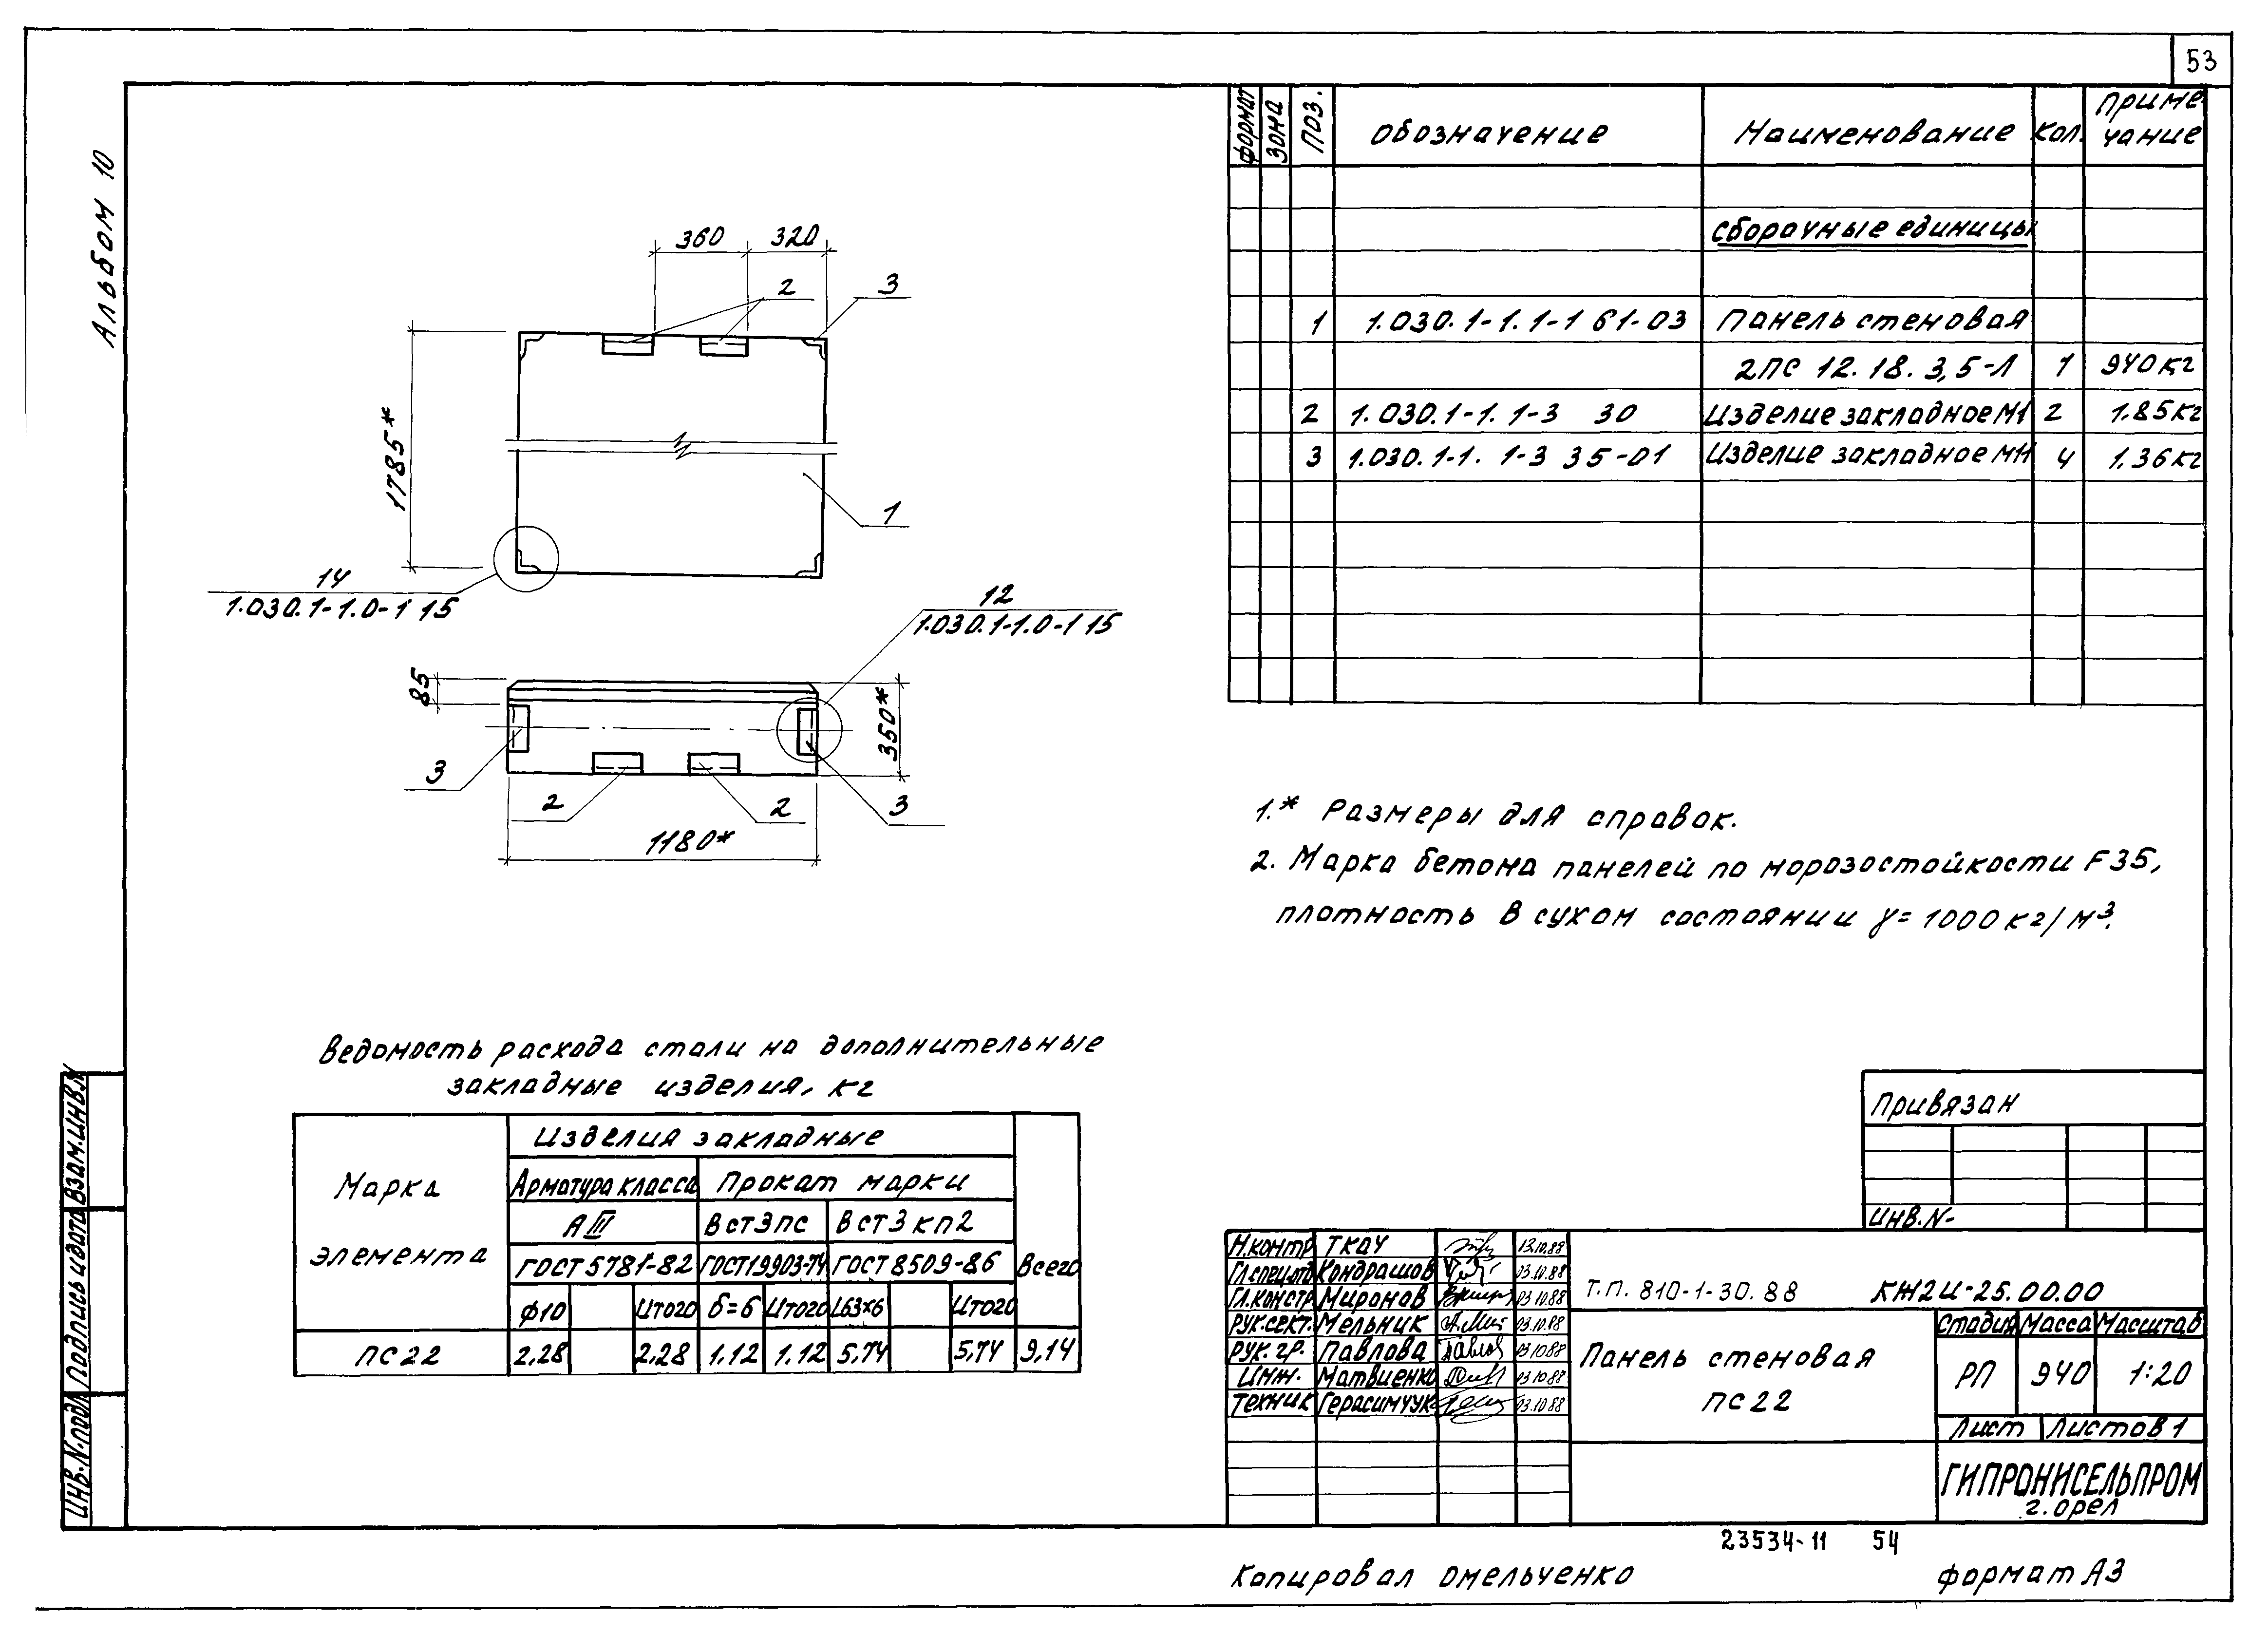 53
Альбом 10
формат
зона
Поз.
Обозначение
Наименование
Кол.
Приме-
чание
Сборочные единицы
1 1.030.1-1.1-1 61-03 Панель стеновая
2ПС 12.18.3,5-Л 1 940кг
2 1.030.1-1.1-3 30 Изделие закладное М1 2 1.85кг
3 1.030.1-1.1-3 35-01 Изделие закладное М11 4 1.36кг
360 320
2 3
1785*
1
14
1.030.1-1.0-1 15
12
1.030.1-1.0-1 15
85
350*
3
2
2
3
1180*
1.* Размеры для справок.
2. Марка бетона панелей по морозостойкости F35,
плотность в сухом состоянии γ=1000кг/м³.
Ведомость расхода стали на дополнительные
закладные изделия, кг
Марка
элемента
Изделия закладные
Арматура класса
Прокат марки
АIII
ВСт3пс
ВСт3кп2
ГОСТ 5781-82
ГОСТ19903-74
ГОСТ 8509-86
Всего
ф10 Итого б=6 Итого L63х6 Итого
ПС22 2.28 2.28 1.12 1.12 5,74 5,74 9,14
Привязан
Инв.N-
Н.контр Ткач 13.10.88
Гл.спец.отд Кондрашов 03.10.88
Гл.констр Миронов 03.10.88
Рук.сект. Мельник 03.10.88
Рук.гр. Павлова 03.10.88
Инж. Матвиенко 03.10.88
Техник Герасимчук 03.10.88
Т.П. 810-1-30.88 КЖ2И-25.00.00
Панель стеновая
ПС22
Стадия Масса Масштаб
РП 940 1:20
Лист Листов 1
ГИПРОНИСЕЛЬПРОМ
г. Орел
Взам.инв.N
Подпись и дата
Инв.N подл
23534-11 54
Копировал Омельченко
формат А3